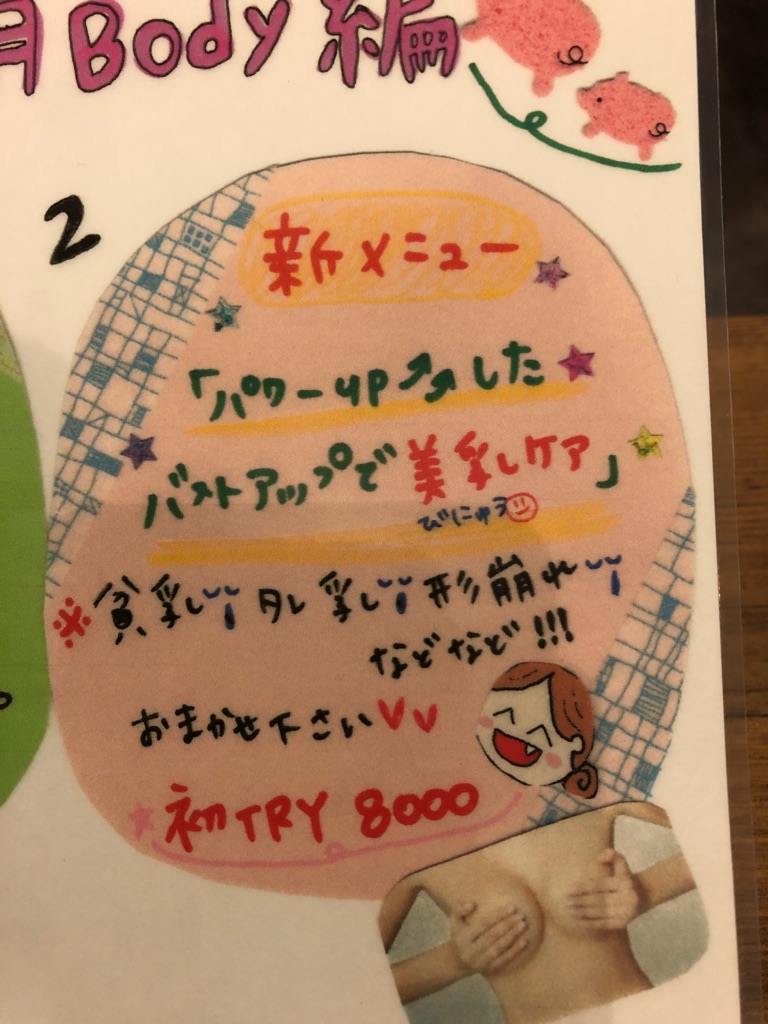 月Body編
2
新メニュー
「パワーup⤴⤴した
バストアップで美乳ケア」
びにゅう
※貧乳 タレ乳 形崩れ
などなど!!!
おまかせ下さい♥♥
初TRY 8000